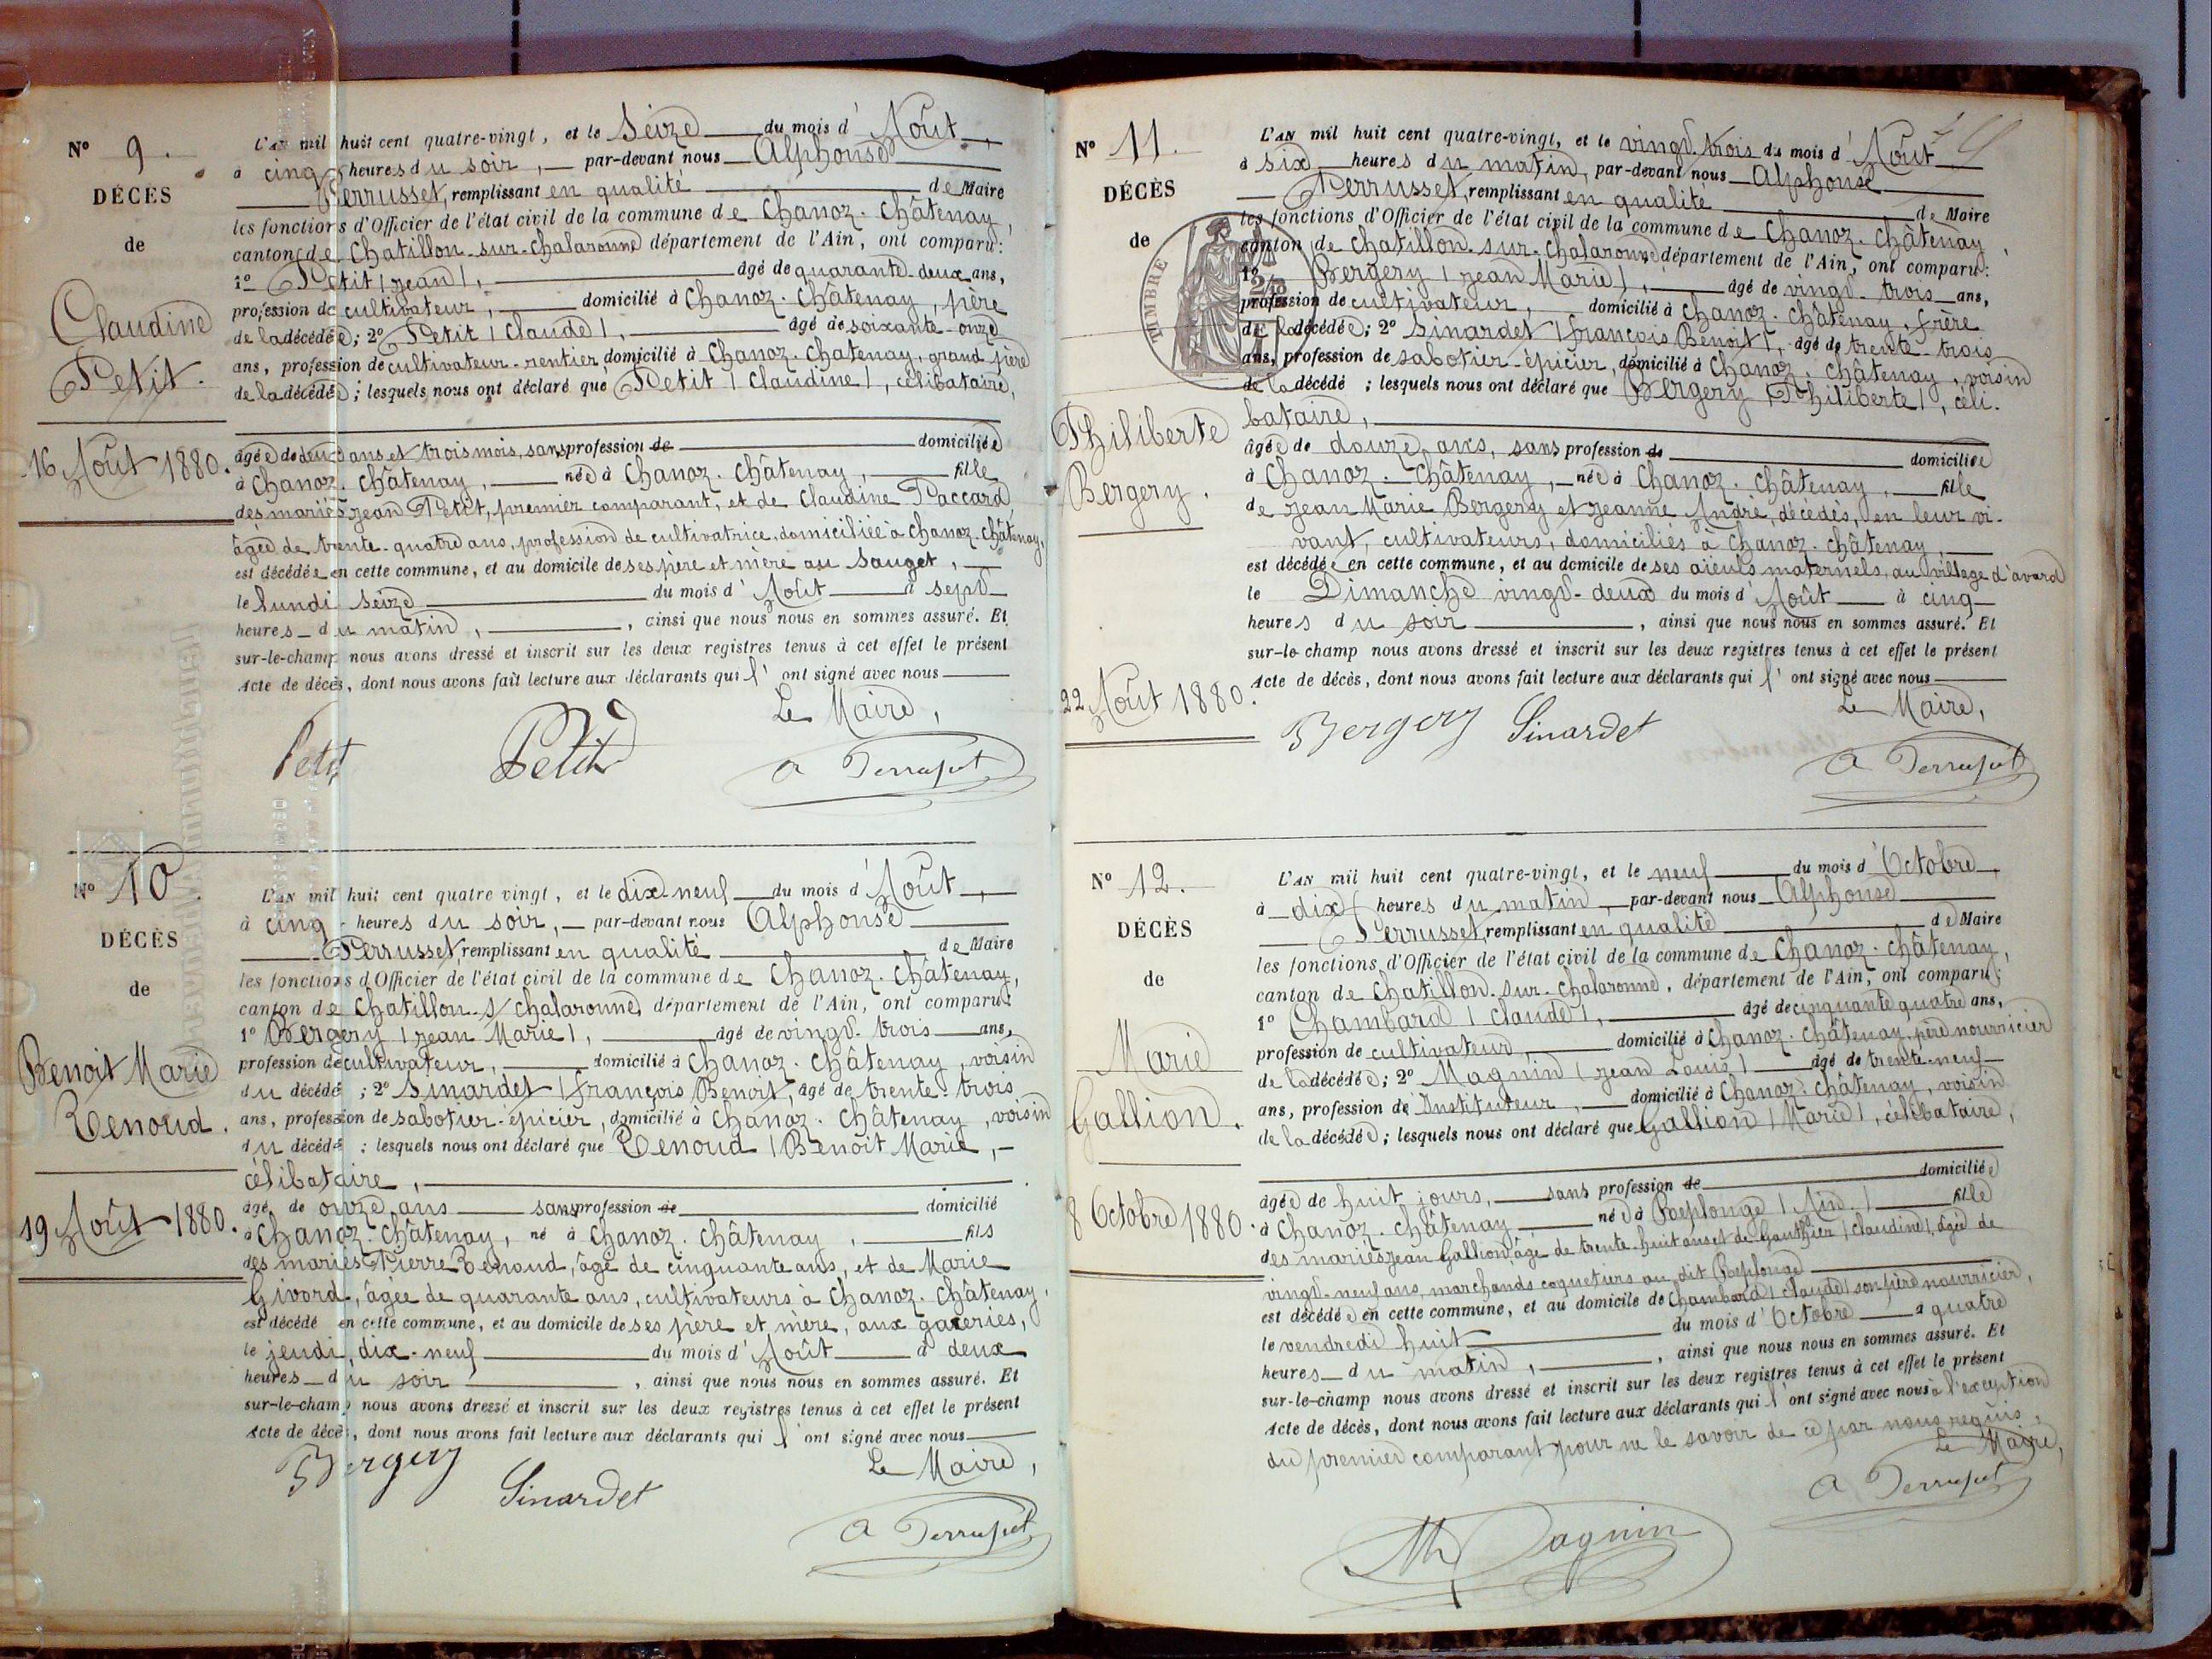 N° 9.
DÉCÈS
de
Claudine
Petit.
16 Août 1880.
L'AN mil huit cent quatre-vingt, et le Seize du mois d'Août,
à cinq heures du soir, par-devant nous Alphonse
Perrusset, remplissant en qualité de Maire
les fonctions d'Officier de l'état civil de la commune de Chanoz-Châtenay,
canton de Chatillon-sur-Chalaronne département de l'Ain, ont comparu:
1° Petit (Jean), âgé de quarante-deux ans,
profession de cultivateur, domicilié à Chanoz-Châtenay, père
de la décédée; 2° Petit (Claude), âgé de soixante-onze
ans, profession de cultivateur-rentier, domicilié à Chanoz-Chatenay, grand-père
de la décédée; lesquels nous ont déclaré que Petit (Claudine), célibataire,
âgée de deux ans et trois mois, sans profession de domiciliée
à Chanoz-Châtenay, née à Chanoz-Châtenay, fille
des mariés Jean Petit, premier comparant, et de Claudine Paccard,
âgée de trente-quatre ans, profession de cultivatrice, domiciliée à Chanoz-Châtenay,
est décédée en cette commune, et au domicile de ses père et mère au Sauget,
le lundi seize du mois d'Août à sept
heures du matin, ainsi que nous nous en sommes assuré. Et
sur-le-champ nous avons dressé et inscrit sur les deux registres tenus à cet effet le présent
Acte de décès, dont nous avons fait lecture aux déclarants qui l'ont signé avec nous
Le Maire,
Petit Petit A Perrusset
N° 10.
DÉCÈS
de
Benoit Marie
Renoud.
19 Août 1880.
L'AN mil huit cent quatre vingt, et le dix-neuf du mois d'Août,
à cinq heures du soir, par-devant nous Alphonse
Perrusset, remplissant en qualité de Maire
les fonctions d'Officier de l'état civil de la commune de Chanoz-Châtenay,
canton de Chatillon-s/Chalaronne, département de l'Ain, ont comparu:
1° Bergery (Jean Marie), âgé de vingt-trois ans,
profession de cultivateur, domicilié à Chanoz-Châtenay, voisin
du décédé; 2° Sinardet (François Benoit, âgé de trente-trois
ans, profession de sabotier-épicier, domicilié à Chanoz-Châtenay, voisin
du décédé; lesquels nous ont déclaré que Renoud (Benoit Marie,
célibataire,
âgé de onze ans sans profession de domicilié
à Chanoz-Châtenay, né à Chanoz-Châtenay, fils
des mariés Pierre Renoud, âgé de cinquante ans, et de Marie
Givord, âgée de quarante ans, cultivateurs à Chanoz-Châtenay,
est décédé en cette commune, et au domicile de ses père et mère, aux
le jeudi, dix-neuf du mois d'Août à deux
heures du soir, ainsi que nous nous en sommes assuré. Et
sur-le-champ nous avons dressé et inscrit sur les deux registres tenus à cet effet le présent
Acte de décès, dont nous avons fait lecture aux déclarants qui l'ont signé avec nous
Le Maire,
Bergery Sinardet A Perrusset
N° 11.
DÉCÈS
de
Philiberte
Bergery.
22 Août 1880.
TIMBRE
L'AN mil huit cent quatre-vingt, et le vingt-trois du mois d'Août
à six heures du matin, par-devant nous Alphonse
Perrusset, remplissant en qualité de Maire
les fonctions d'Officier de l'état civil de la commune de Chanoz-Châtenay,
canton de Chatillon-sur-Chalaronne département de l'Ain, ont comparu:
1° Bergery (Jean Marie), âgé de vingt-trois ans,
profession de cultivateur, domicilié à Chanoz-Châtenay, frère
de la décédée; 2° Sinardet (François Benoit), âgé de trente-trois
ans, profession de sabotier-épicier, domicilié à Chanoz-Châtenay, voisin
de la décédé; lesquels nous ont déclaré que Bergery (Philiberte), céli-
bataire,
âgée de douze ans, sans profession de domiciliée
à Chanoz-Châtenay, née à Chanoz-Châtenay, fille
de Jean Marie Bergery et Jeanne André, décédés, en leur vi-
vant, cultivateurs, domiciliés à Chanoz-Châtenay,
est décédée en cette commune, et au domicile de ses aïeuls maternels, au village d'avard
le Dimanche vingt-deux du mois d'Août à cinq
heures du soir, ainsi que nous nous en sommes assuré. Et
sur-le-champ nous avons dressé et inscrit sur les deux registres tenus à cet effet le présent
Acte de décès, dont nous avons fait lecture aux déclarants qui l'ont signé avec nous
Le Maire,
Bergery Sinardet A Perrusset
N° 12.
DÉCÈS
de
Marie
Gallion.
8 Octobre 1880.
L'AN mil huit cent quatre-vingt, et le neuf du mois d'Octobre,
à dix heures du matin, par-devant nous Alphonse
Perrusset, remplissant en qualité de Maire
les fonctions d'Officier de l'état civil de la commune de Chanoz-Châtenay,
canton de Chatillon-sur-Chalaronne, département de l'Ain, ont comparu:
1° Chambard (Claude), âgé de cinquante quatre ans,
profession de cultivateur, domicilié à Chanoz-Châtenay, père nourricier
de la décédée; 2° Magnin (Jean Louis) âgé de trente-neuf
ans, profession de Instituteur, domicilié à Chanoz-Châtenay, voisin
de la décédée; lesquels nous ont déclaré que Gallion (Marie), célibataire,
âgée de huit jours, sans profession de domiciliée
à Chanoz-Châtenay née à Replonge (Ain) fille
des mariés Jean Gallion âgé de trente-huit ans et de Gauthier (Claudine), âgée de
vingt-neuf ans, marchands coquetiers au dit Replonge
est décédée en cette commune, et au domicile de Chambard (Claude) son père nourricier,
le vendredi huit du mois d'Octobre à quatre
heures du matin, ainsi que nous nous en sommes assuré. Et
sur-le-champ nous avons dressé et inscrit sur les deux registres tenus à cet effet le présent
Acte de décès, dont nous avons fait lecture aux déclarants qui l'ont signé avec nous à l'exception
du premier comparant pour ne le savoir de ce par nous requis,
Le Maire,
A Perrusset
Magnin